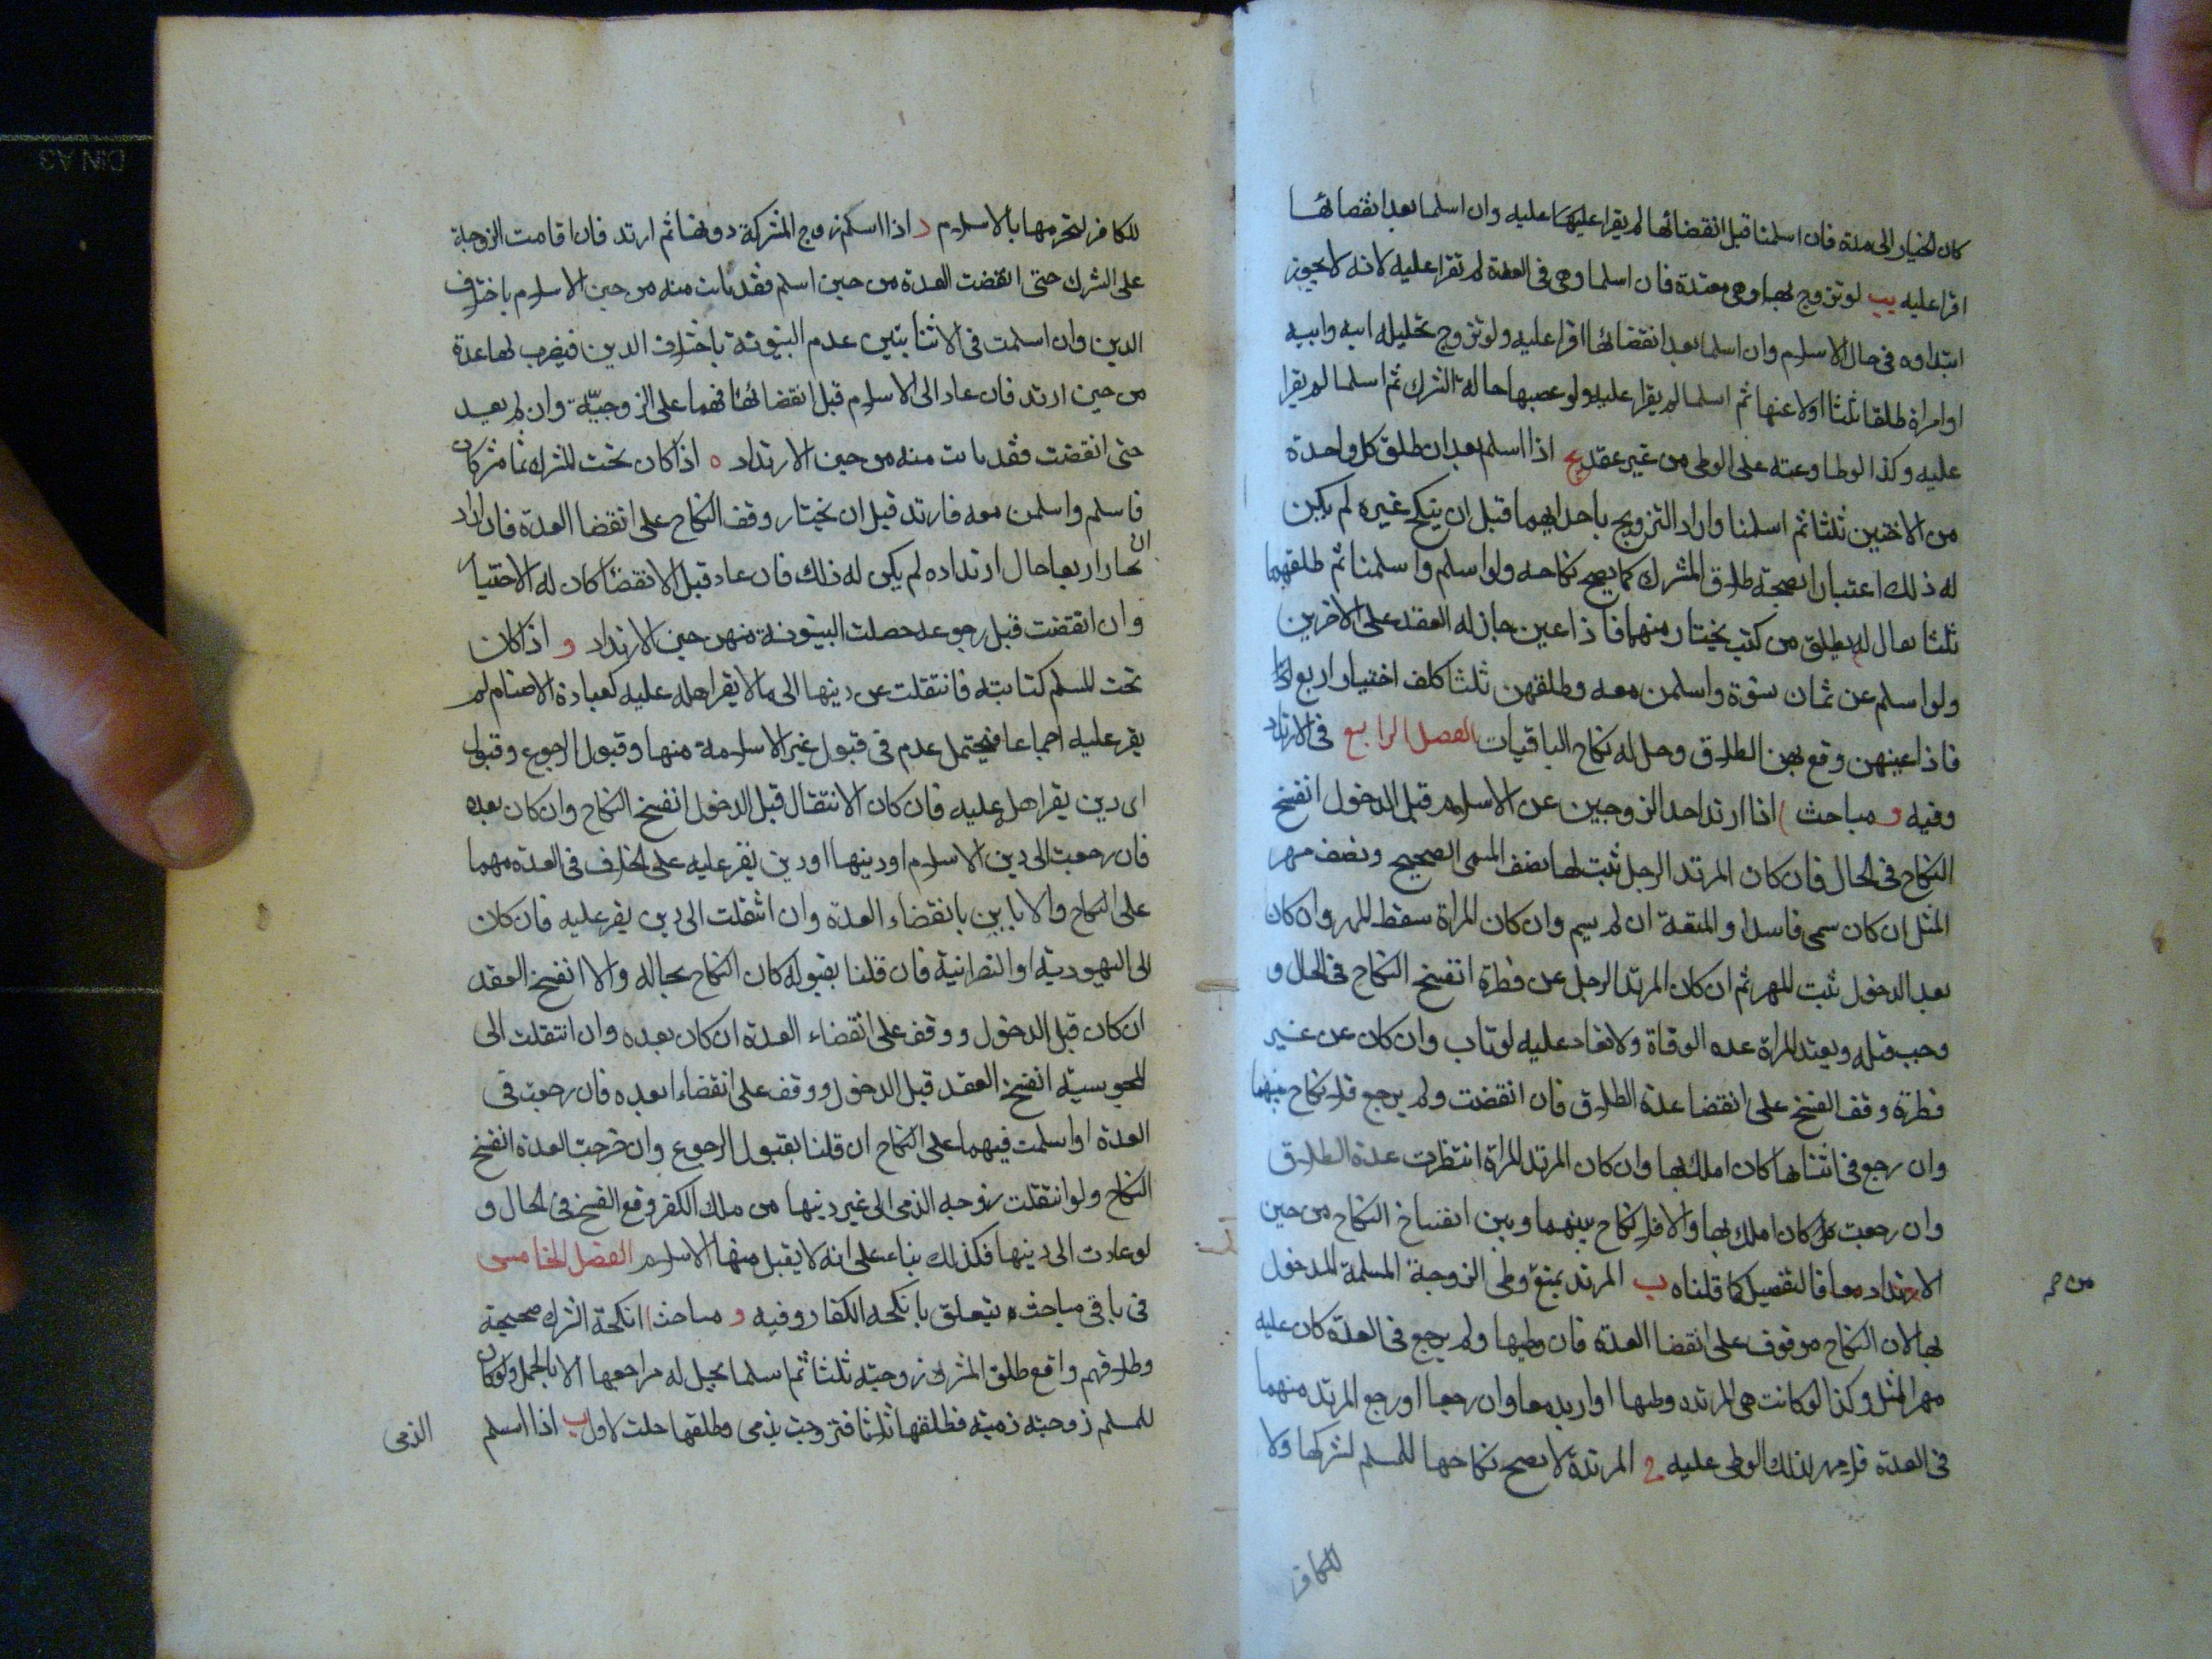 كان الخيار الى مدة فان اسلمتا قبل انقضائها لم يقرا عليها عليه وان اسلما بعد انقضائها
اقرا عليه يب لو تزوج بها وهي معتدة فان اسلما وهي في العدة لم تقرا عليه لانه لا يجوز
ابتداوه في حال الاسلام وان اسلما بعد انقضائها اقرا عليه ولو تزوج بحليلة ابيه وابنه
او امراة طلقها ثلثا اولاعنها ثم اسلما لم يقرا عليه ولو غصبها حالة الشرك ثم اسلما لم يقرا
عليه وكذا لو طاوعته على الوطى من غير عقد يج اذا اسلم بعد ان طلق كل واحدة
من الاختين ثلثا ثم اسلمتا واراد التزويج باحدايهما قبل ان ينكح غيره لم يكن
له ذلك اعتبارا بصحة طلاق المشرك كما يصح نكاحه ولو اسلم واسلمتا ثم طلقهما
ثلثا يقال له طلق من كنت تختار منهما فاذا عين جاز له العقد على الاخرين
ولو اسلم عن ثمان نسوة واسلمن معه وطلقهن ثلثا كلف اختيار اربع
فاذا عينهن وقع بهن الطلاق وحل له نكاح الباقيات الفصل الرابع في الارتداد
وفيه و مباحث ا اذا ارتد احد الزوجين عن الاسلام قبل الدخول انفسخ
النكاح في الحال فان كان المرتد الرجل ثبت لها نصف المسمى الصحيح ونصف مهر
المثل ان كان سمى فاسدا والمتعة ان لم يسم وان كان المراة سقط المهر وان كان
بعد الدخول ثبت المهر ثم ان كان المرتد الرجل عن فطرة انفسخ النكاح في الحال و
وجب قتله ويعتد المراة عدة الوفاة ولا تعاد عليه لو تاب وان كان عن غير
فطرة وقف الفسخ على انقضا عدة الطلاق فان انقضت ولم يرجع فلا نكاح بينهما
وان رجع في اثنائها كان املك بها وان كان المرتد المراة انتظرت عدة الطلاق
وان رجعت كان املك بها والا فلا نكاح بينهما وبين انفساخ النكاح من حين
الارتداد معا فالتفصيل كما قلناه ب المرتد يمنع وطى الزوجة المسلمة المدخول
من حر
بها لان النكاح موقوف على انقضا العدة فان وطيها ولم يرجع في العدة كان عليه
مهر المثل وكذا لو كانت هي المرتدة وطيها او ارتدا معا وان رجعا او رجع المرتد منهما
في العدة فلا مهر لذلك الوطى عليه ج المرتدة لا يصح نكاحها للمسلم لشركها ولا
للكافر
للكافر لتحرمها بالاسلام د اذا اسلم زوج المشركة دونها ثم ارتد فان اقامت الزوجة
على الشرك حتى انقضت العدة من حين اسلم فقد بانت منه من حين الاسلام باختلاف
الدين وان اسلمت في الاثنا يتبين عدم البينونة باختلاف الدين فيضرب لها عدة
من حين ارتد فان عاد الى الاسلام قبل انقضائها فهما على الزوجية وان لم يعد
حتى انقضت فقد بانت منه من حين الارتداد ه اذا كان تحت المشرك ثمامشركات
فاسلم واسلمن معه فارتد قبل ان يختار وقف النكاح على انقضا العدة فان اراد
ان يختار اربعا حال ارتداده لم يكن له ذلك فان عاد قبل الانقضا كان له الاختيار
وان انقضت قبل رجوعه حصلت البينونة منهن حين الارتداد و اذا كان
تحت المسلم كتابية فانتقلت عن دينها الى ما لا يقر اهله عليه كعبادة الاصنام لم
يقر عليه اجماعا فيحتمل عدم في قبول غير الاسلام منها وقبول الرجوع وقبول
اى دين يقر اهله عليه فان كان الانتقال قبل الدخول انفسخ النكاح وان كان بعده
فان رجعت الى دين الاسلام او دينها او دين يقر عليه على الخلاف في العدة فهما
على النكاح والا بابين بانقضاء العدة وان انتقلت الى دين يقر عليه فان كان
الى اليهودية او النصرانية فان قلنا بقبوله كان النكاح بحاله والا انفسخ العقد
ان كان قبل الدخول ووقف على انقضاء العدة ان كان بعده وان انتقلت الى
المجوسية انفسخ العقد قبل الدخول ووقف على انقضاءا بعده فان رجعت في
العدة او اسلمت فيهما على النكاح ان قلنا بقبول الرجوع وان خرجت العدة انفسخ
النكاح ولو انتقلت زوجه الذمى الى غير دينها من ملل الكفر وقع الفسخ في الحال و
لو عادت الى دينها فكذلك بناء على انه لا يقبل منها الا الاسلام الفصل الخامس
في باقي مباحث يتعلق بانكحه الكفار وفيه و مباحث ا انكحة الشرك صحيحة
وطلاقهم واقع طلق المشرك زوجته ثلثا ثم اسلما لم يحل له مراجعها الا بالمحلل ولو كان
للمسلم زوجته ذميه فطلقها ثلاثا فتزوجت بذمى وطلقها حلت للاول ب اذا اسلم
الذمى